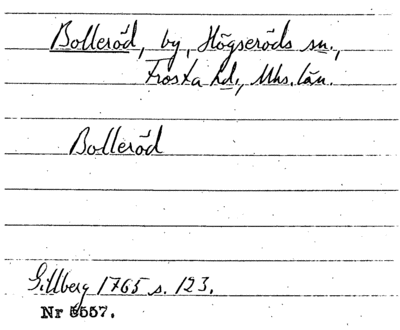 Bolleröd, by, Högseröds sn.,
Frosta hd., Mhs. län.
Bolleröd
Gillberg 1765 s. 123.
Nr 5557.